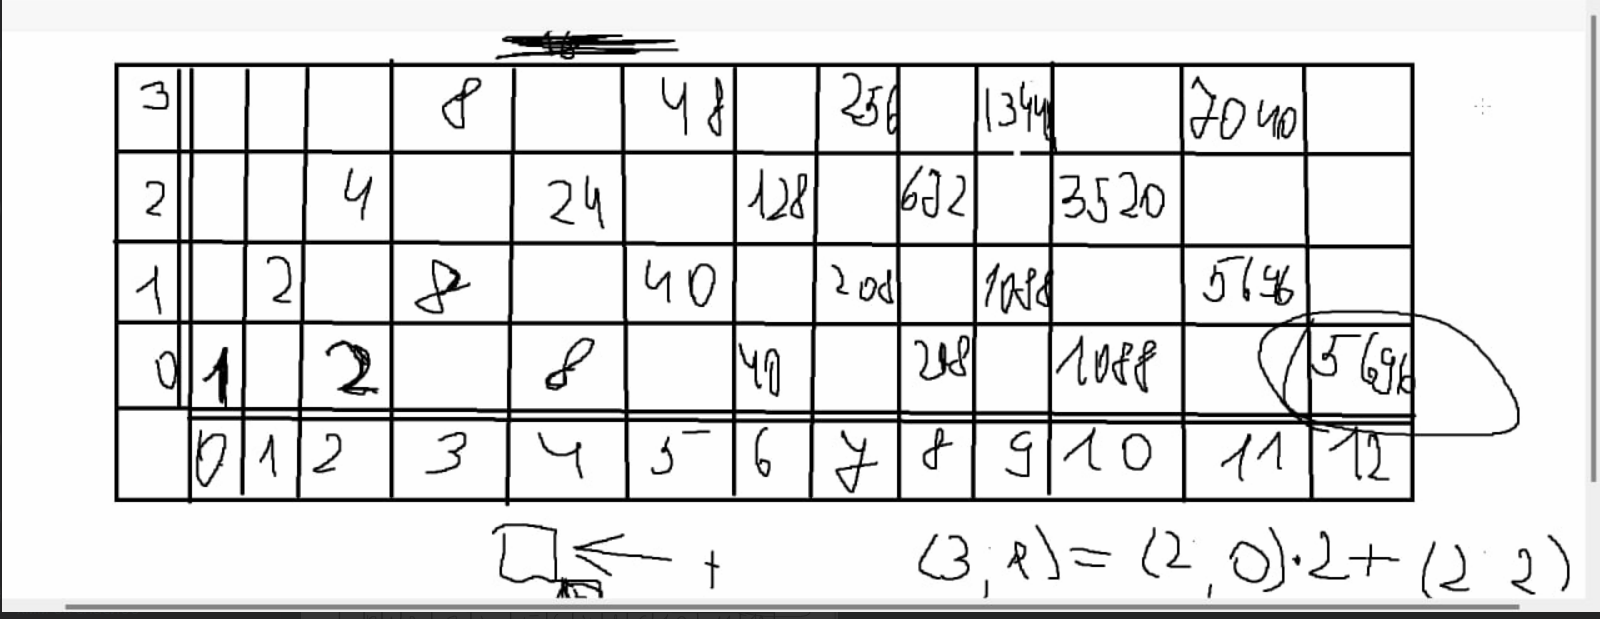 16
3 8 48 256 1344 7040
2 4 24 128 672 3520
1 2 8 40 208 1088 5696
0 1 2 8 40 208 1088 5696
0 1 2 3 4 5 6 7 8 9 10 11 12
+ (3; 1) = (2, 0)·2 + (2 2)